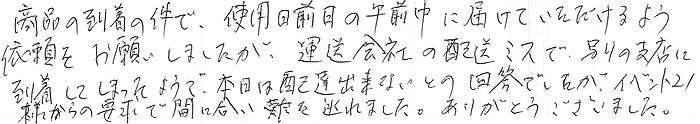 商品の到着の件で、使用日前日の午前中に届けていただけるよう
依頼をお願いしましたが、運送会社の配送ミスで、別の支店に
到着してしまったようで、本日は配達出来ないとの回答でしたが、イベント21
様からの要求で間に合い難を逃れました。ありがとうございました。